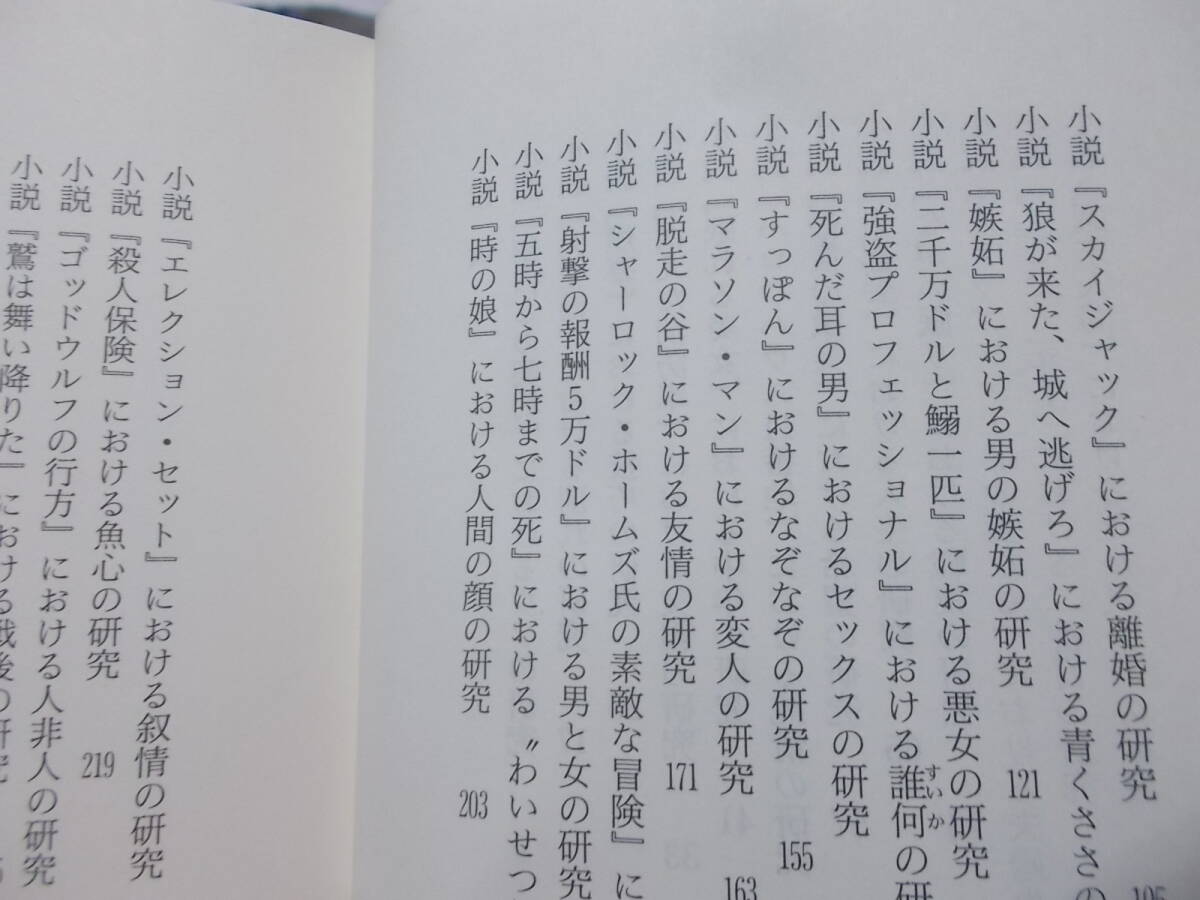 小説『スカイジャック』における離婚の研究
小説『狼が来た、城へ逃げろ』における青くささの
小説『嫉妬』における男の嫉妬の研究 121
小説『二千万ドルと鰯一匹』における悪女の研究
小説『強盗プロフェッショナル』における誰何すいかの研
小説『死んだ耳の男』におけるセックスの研究
小説『すっぽん』におけるなぞなぞの研究 155
小説『マラソン・マン』における変人の研究 163
小説『脱走の谷』における友情の研究 171
小説『シャーロック・ホームズ氏の素敵な冒険』に
小説『射撃の報酬5万ドル』における男と女の研究
小説『五時から七時までの死』における〝わいせつ
小説『時の娘』における人間の顔の研究 203
小説『エレクション・セット』における叙情の研究
小説『殺人保険』における魚心の研究 219
小説『ゴッドウルフの行方』における人非人の研究
小説『鷲は舞い降りた』における戦後の研究